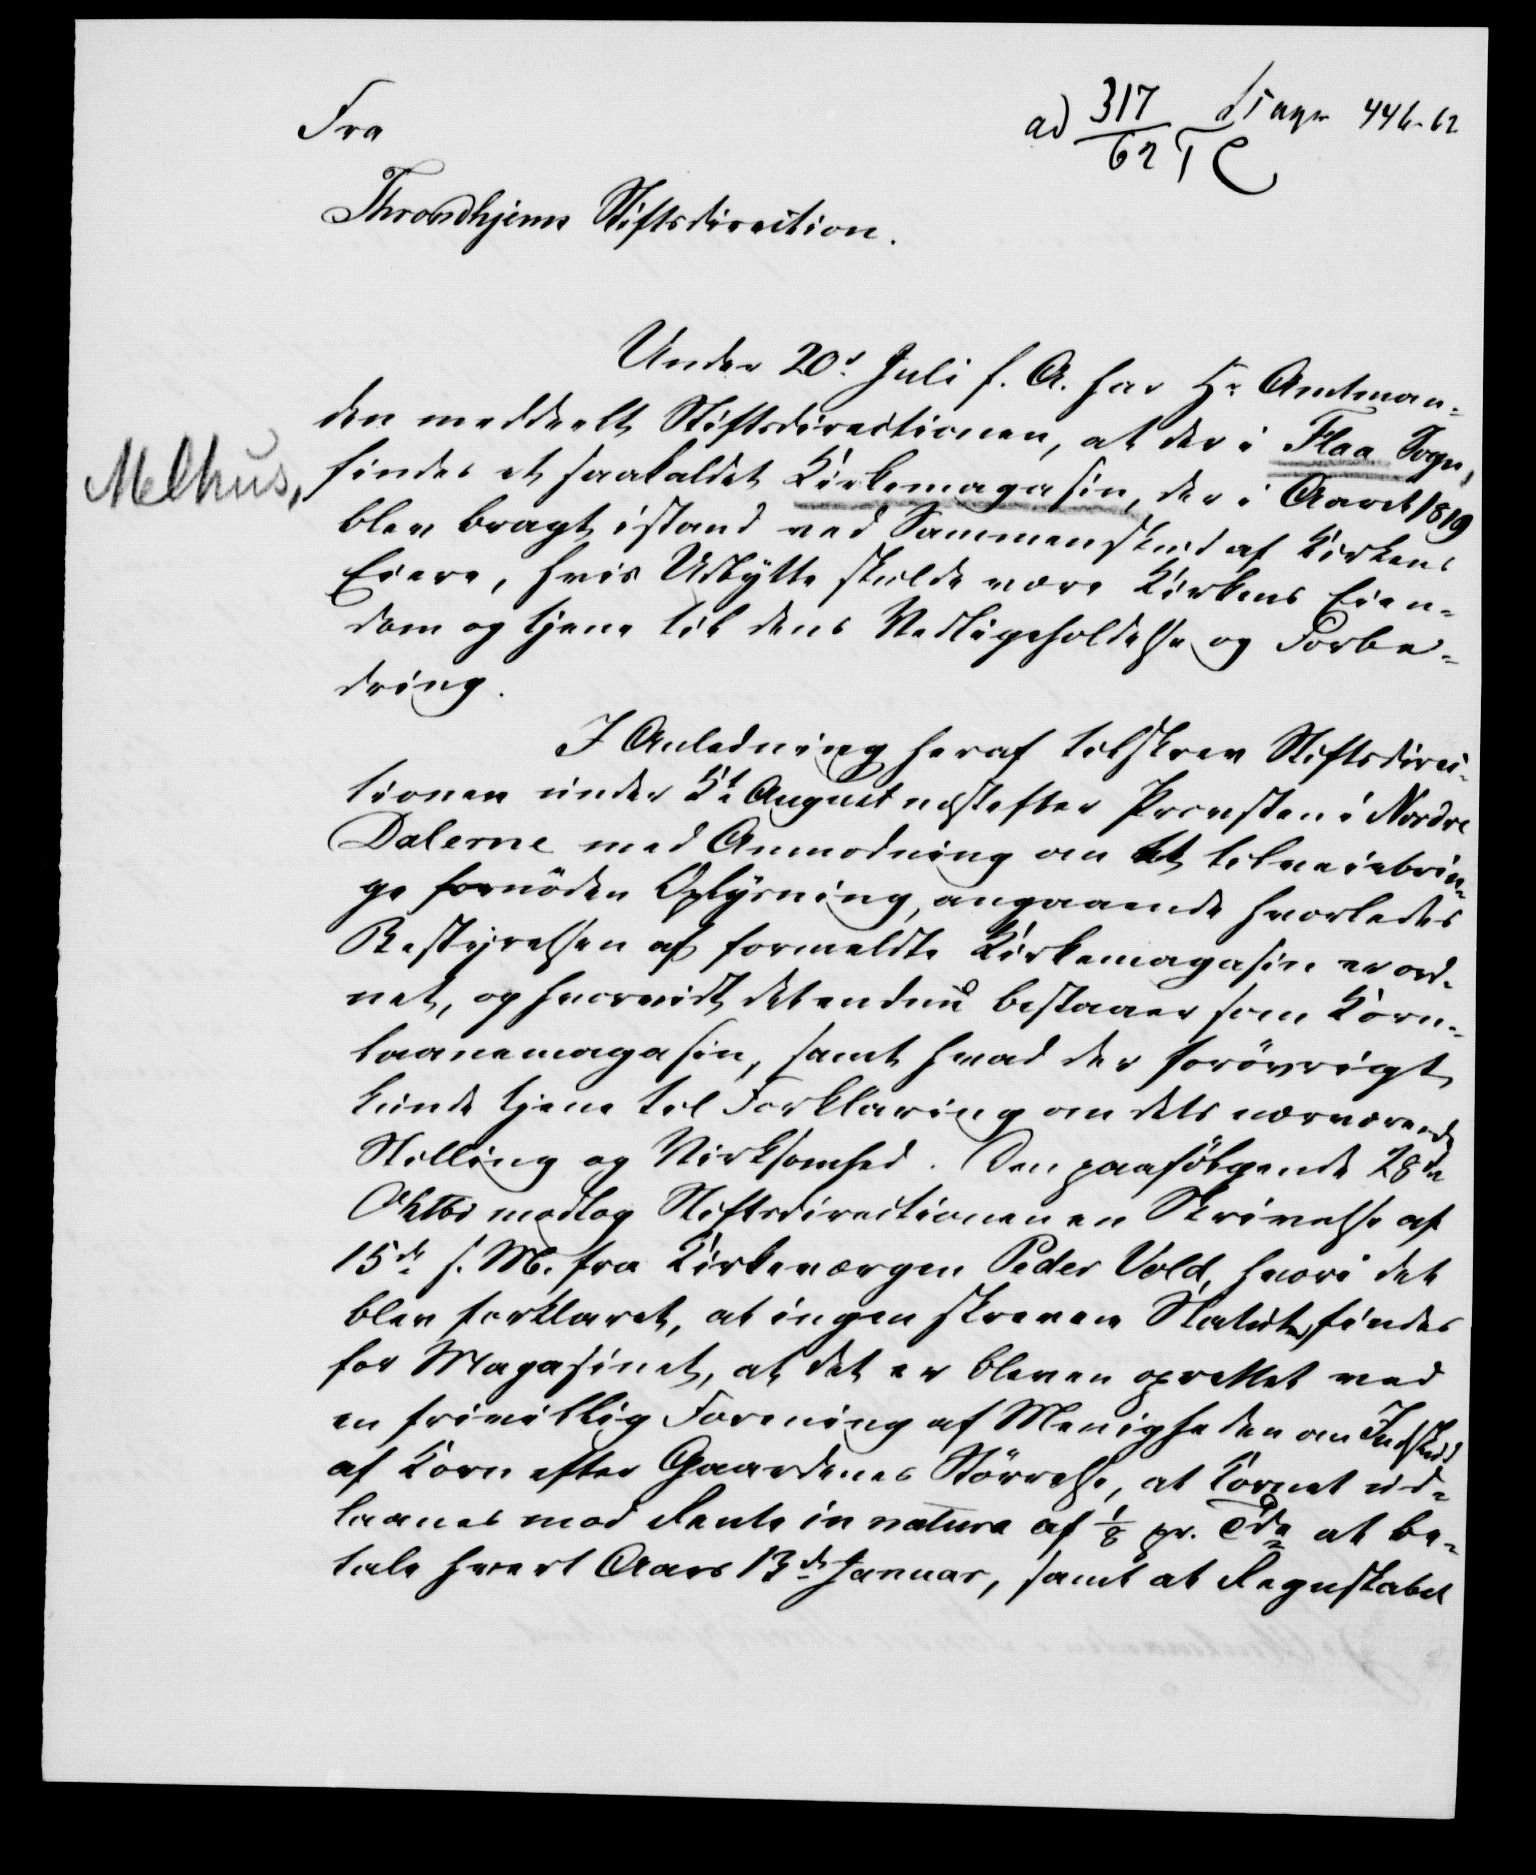 Fra
ad 317/62
446-62
Throndhjems Stiftsdirection.
Under 20de Juli f. A. har Hr Amtman-
den meddeelt Stiftsdirectionen, at der i Flaa Sogn,
Melhus,
findes et saakaldet Kirkemagasin, der i Aaret 1819
blev bragt istand ved Sammenskud af Kirkens
Eiere, hvis Udbytte skulde være Kirkens Eien-
dom og tjene til dens Vedligeholdelse og Forbe-
dring.
I Anledning heraf tilskrev Stiftsdirec-
tionen under 5te August næstefter Provsten i Nordre
Dalerne med Anmodning om at tilveiebrin-
ge fornöden Oplysning, angaaende hvorledes
Bestyrelsen af formeldte Kirkemagasin er ord-
net, og hvorvidt det endnu bestaaer som Korn-
laanemagasin, samt hvad der forövrigt
kunde tjene til Forklaring om dets nærværende
Stilling og Virksomhed. Den paafölgende 28de
Oktbr modtog Stiftsdirectionen en Skrivelse af
15de s. M. fra Kirkeværgen Peder Vold, hvori det
blev forklaret, at ingen skreven Statuter findes
for Magasinet, at det er bleven oprettet ved
en frivillig Forening af Menigheden om Indskud
af Korn efter Gaardenes Störrelse, at Kornet ud-
laanes mod Rente in natura af 1/8 pr. Tde at be-
tale hvert Aars 13de Januar, samt at Regnskabet